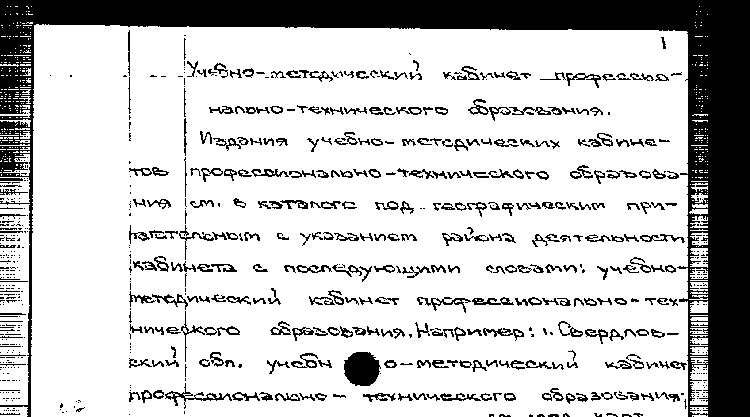 1
Учебно-методический кабинет профессио-
нально-технического образования.
Издания учебно-методических кабине-
тов профессионально-технического образова-
ния см. в каталоге под географическим при-
лагательным с указанием района деятельности
кабинета с последующими словами: учебно-
методический кабинет профессионально-тех-
нического образования. Например: 1. Свердлов-
ский обл. учебно-методический кабинет
профессионально-технического образования;